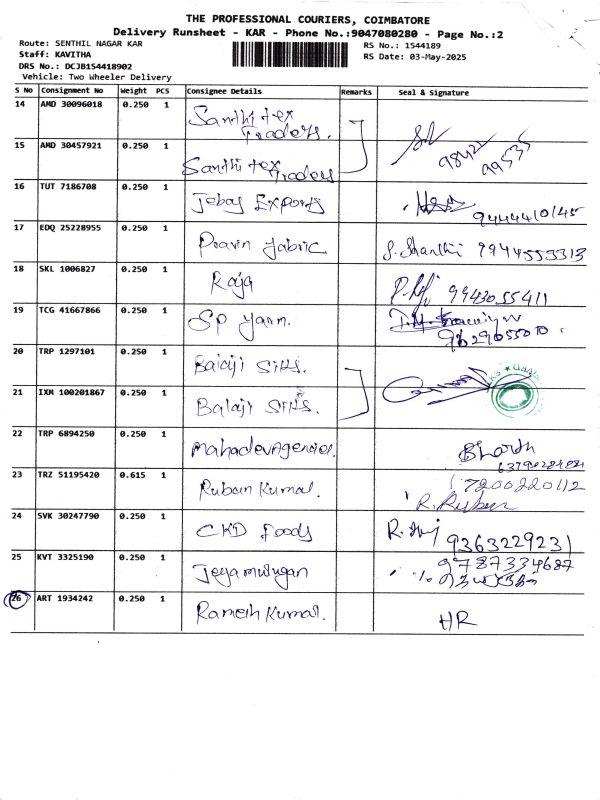 THE PROFESSIONAL COURIERS, COIMBATORE
Delivery Runsheet - KAR - Phone No.:9047080280 - Page No.:2
Route: SENTHIL NAGAR KAR
Staff: KAVITHA
DRS No.: DCJB154418902
Vehicle: Two Wheeler Delivery
RS No.: 1544189
RS Date: 03-May-2025
S No Consignment No Weight PCS Consignee Details Remarks Seal & Signature
14 AMD 30096018 0.250 1 Santhi tex Traders.
15 AMD 30457921 0.250 1 Santhi tex Traders
16 TUT 7186708 0.250 1 Jebas Exports 9444410145
17 EDQ 25228955 0.250 1 Pravin fabric S. Shanthi 9944553313
18 SKL 1006827 0.250 1 Raja 9943055411
19 TCG 41667866 0.250 1 SP yarn. 9629055010
20 TRP 1297101 0.250 1 Balaji Silks.
21 IXM 100201867 0.250 1 Balaji Silks.
22 TRP 6894250 0.250 1 Mahadev agencies. Bharath
23 TRZ 51195420 0.615 1 Ruban Kumar. 7200220112
R. Ruban
24 SVK 30247790 0.250 1 CKD Foods 9363229231
25 KVT 3325190 0.250 1 Jeyamurugan 9787334687
26 ART 1934242 0.250 1 Ramesh Kumar. HR